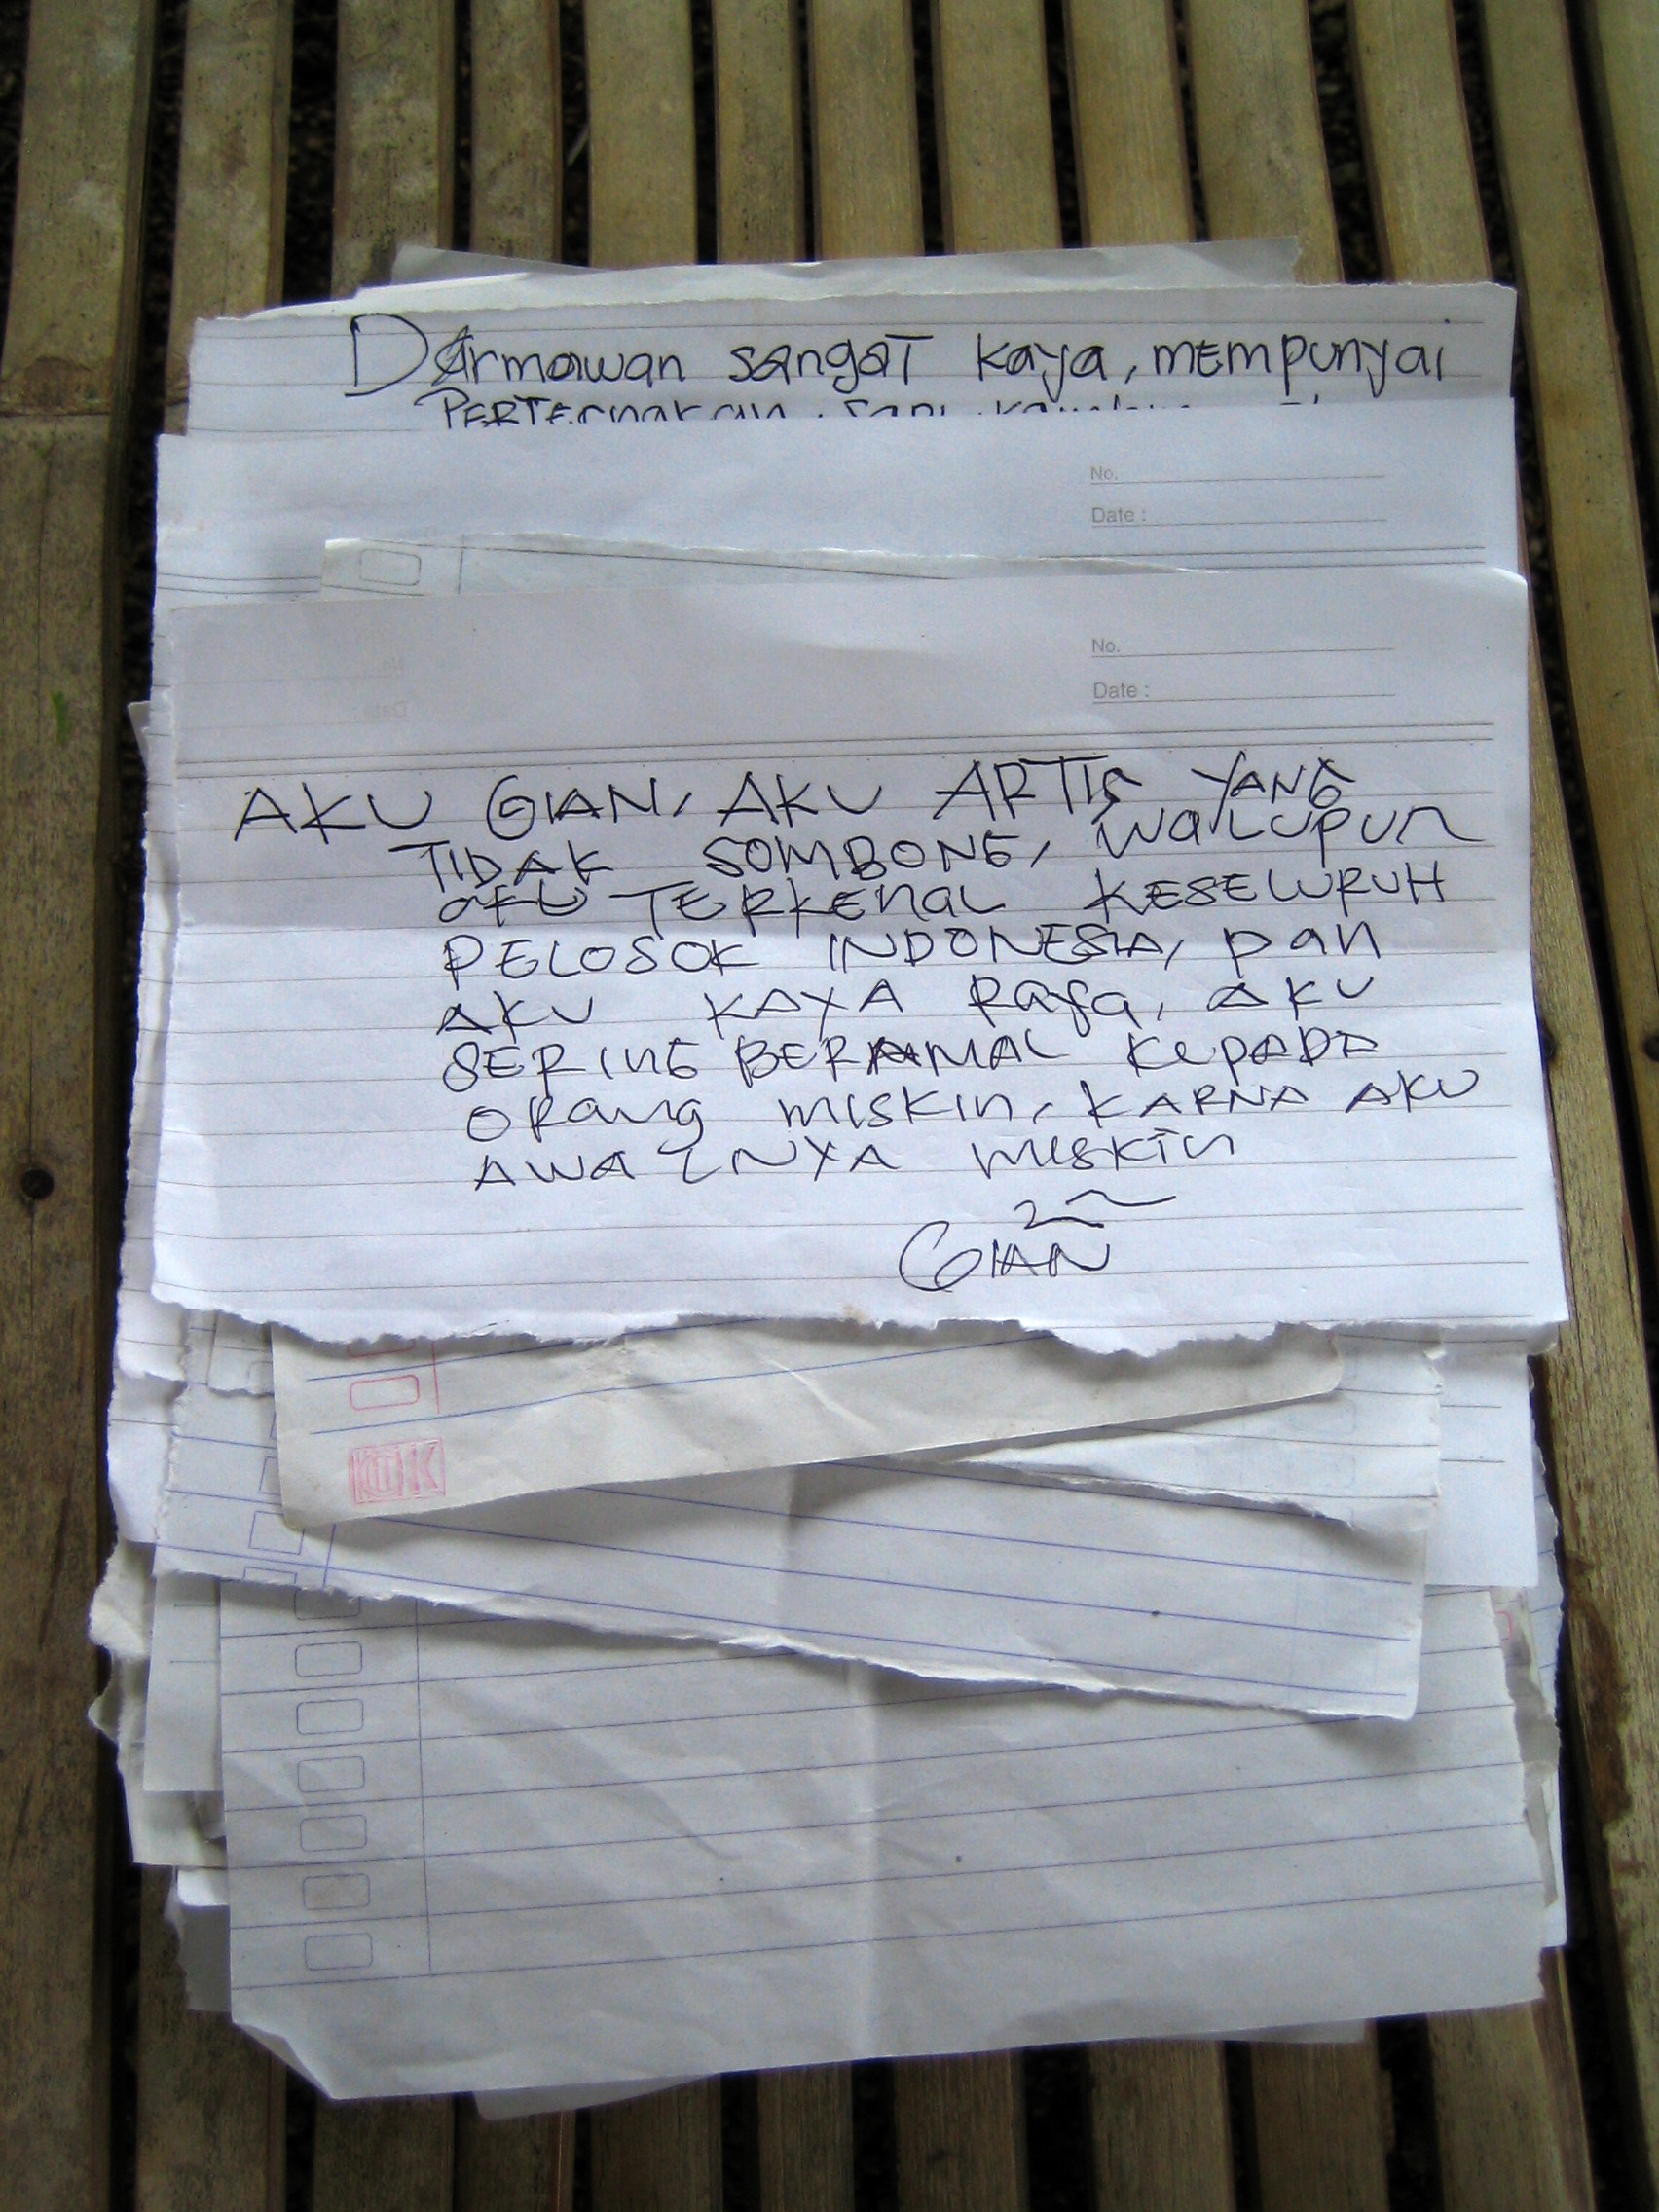 Darmawan sangat kaya, mempunyai
No.
Date :
No.
Date :
AKU GIAN, AKU ARTIS YANG
TIDAK SOMBONG, walupun
aku TERKENAL KESELURUH
PELOSOK INDONESIA, Dan
AKU KAYA Raya, AKU
SERING BERAMAL KEPADA
ORang miskin, KARNA AKU
AWALNYA miskin
GIAN
KIIK